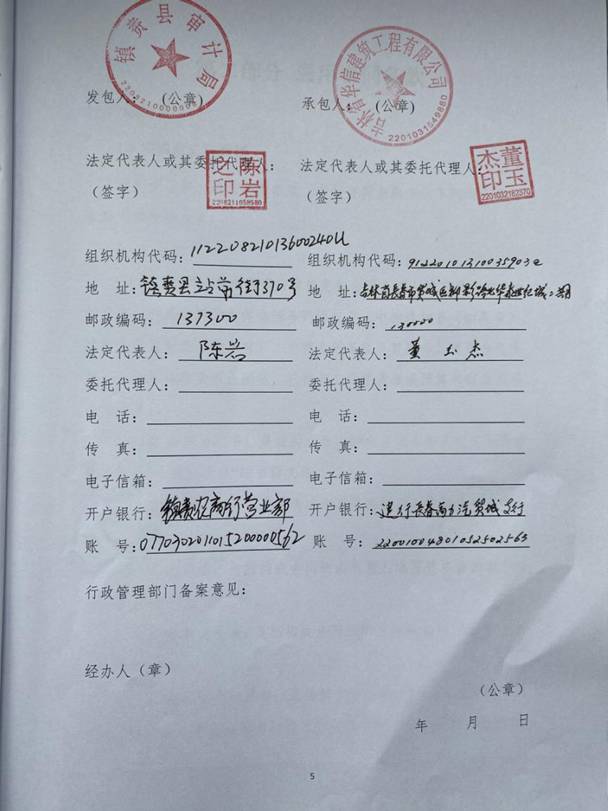 镇赉县审计局
吉林省华信建筑工程有限公司
2201031549880
发包人： (公章) 承包人： (公章)
法定代表人或其委托代理人： 法定代表人或其委托代理人：
陈岩之印
董玉杰印
2201032182370
（签字） （签字）
组织机构代码： 组织机构代码：
地 址：镇赉县站前街370号 地 址：
邮政编码：137300 邮政编码：130000
法定代表人：陈岩 法定代表人：董玉杰
委托代理人： 委托代理人：
电 话： 电 话：
传 真： 传 真：
电子信箱： 电子信箱：
开户银行：镇赉农商行营业部 开户银行：建行长春南方汽贸城支行
账 号：0770302011015200000562 账 号：22001004801052502565
行政管理部门备案意见：
经办人（章）
（公章）
年 月 日
5